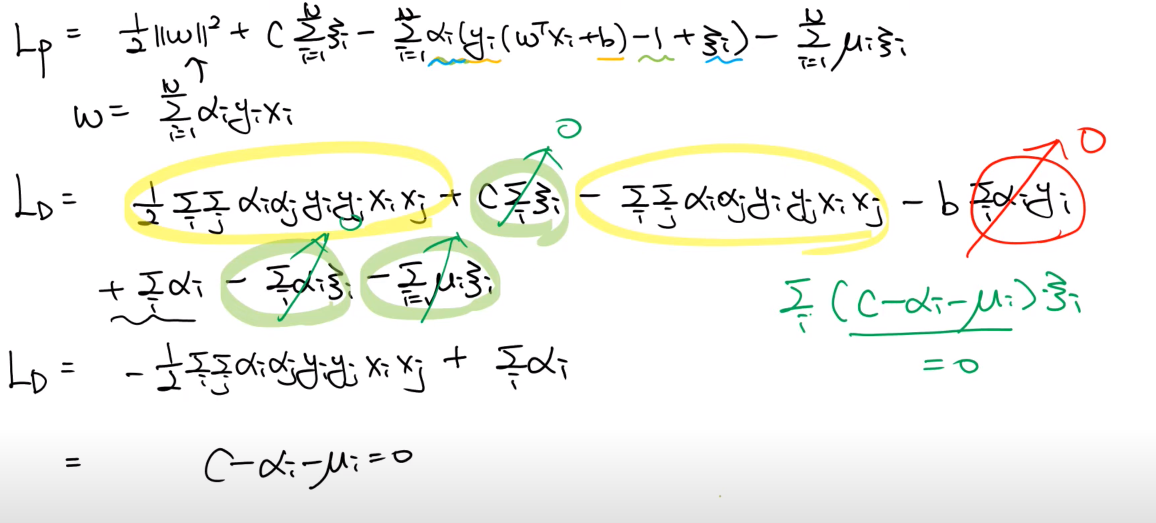 L_P = ½||w||² + C Σ_{i=1}^{N} ξ_i − Σ_{i=1}^{N} α_i(y_i(w^T x_i + b) − 1 + ξ_i) − Σ_{i=1}^{N} μ_i ξ_i
↑
w = Σ_{i=1}^{N} α_i y_i x_i
0 0
L_D = ½ Σ_i Σ_j α_i α_j y_i y_j x_i x_j + C Σ_i ξ_i − Σ_i Σ_j α_i α_j y_i y_j x_i x_j − b Σ_i α_i y_i
0
+ Σ_i α_i − Σ_i α_i ξ_i − Σ_{i=1} μ_i ξ_i
Σ_i (C − α_i − μ_i) ξ_i
= 0
L_D = − ½ Σ_i Σ_j α_i α_j y_i y_j x_i x_j + Σ_i α_i
= C − α_i − μ_i = 0